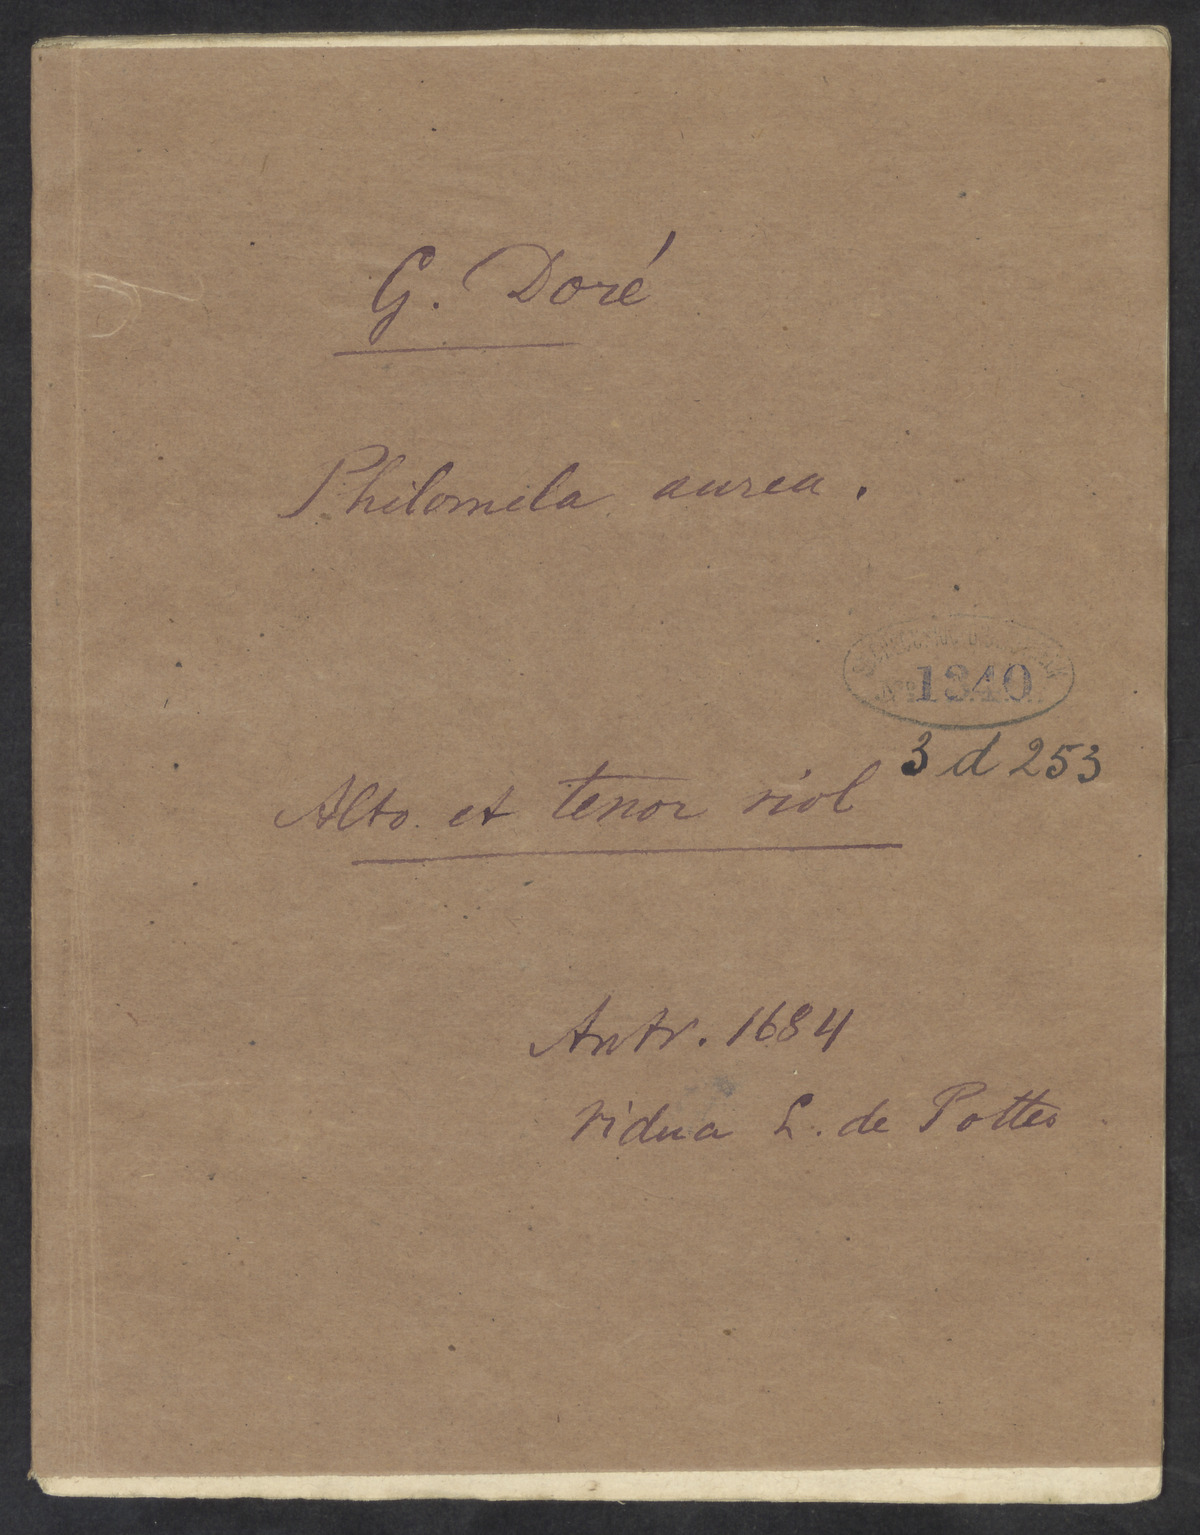 G. Doré
Philomela aurea.
No. 1340
3 d 253
Alto et tenor viol
Antv. 1684
Vidua L. de Pottes